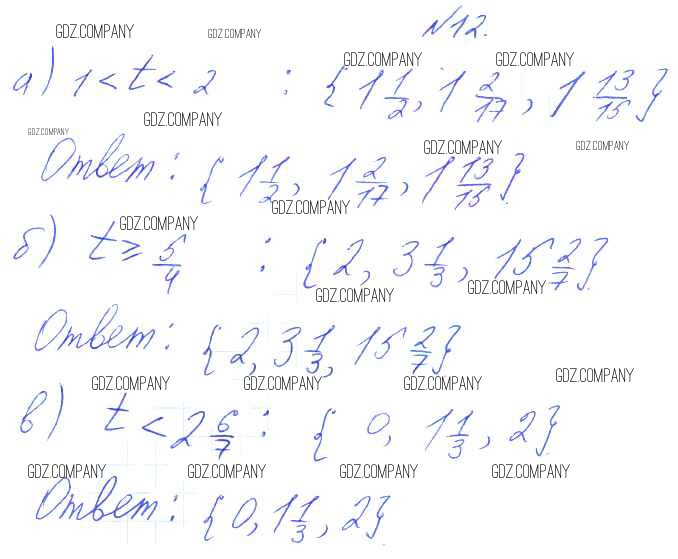 GDZ.COMPANY GDZ.COMPANY №12.
GDZ.COMPANY GDZ.COMPANY
а) 1 < t < 2 : {1 1/2, 1 2/17, 1 13/15}
GDZ.COMPANY GDZ.COMPANY
GDZ.COMPANY GDZ.COMPANY
Ответ: {1 1/2, 1 2/17, 1 13/15}
GDZ.COMPANY
GDZ.COMPANY
б) t ≥ 5/4 : {2, 3 1/3, 15 2/7}
GDZ.COMPANY GDZ.COMPANY
Ответ: {2, 3 1/3, 15 2/7}
GDZ.COMPANY GDZ.COMPANY GDZ.COMPANY GDZ.COMPANY
в) t < 2 6/7 : {0, 1 1/3, 2}
GDZ.COMPANY GDZ.COMPANY GDZ.COMPANY GDZ.COMPANY
Ответ: {0, 1 1/3, 2}